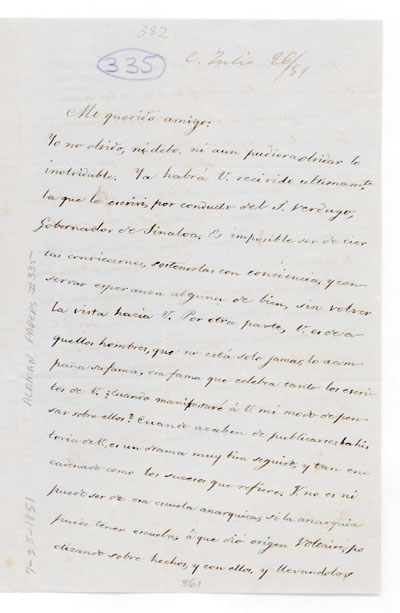 332
335
C. Julio 26/51
Mi querido amigo:
Yo no olvido, ni debo, ni aun pudiera olvidar lo
inolvidable. Ya habrá V. recivido ultimamte
la que le escriví, por conducto del S. Verdugo
Gobernador de Sinaloa. Es imposible ser de cier
tas convicciones, sostenerlas con conciencia, y con
servar esperanza alguna de bien, sin volver
la vista hacia V. Por otra parte, V. es de a
quellos hombres, que no está solo jamas, lo acom
paña su fama, esa fama que celebra tanto los escri
tos de V. ¿Cuando manifestaré á V. mi modo de pen
sar sobre ellos? Cuando acaben de publicarse: la his
toria de V. es un drama muy bien seguido, y tan en
cadenado como los sucesos que refiere. V. no es ni
puede ser de esa escuela anarquica, si la anarquia
puede tener escuela, á que dió origen Voltaire, po
etizando sobre hechos, y con ellos, y llevandolos
361
ALAMAN PAPERS #335
7-28-1851